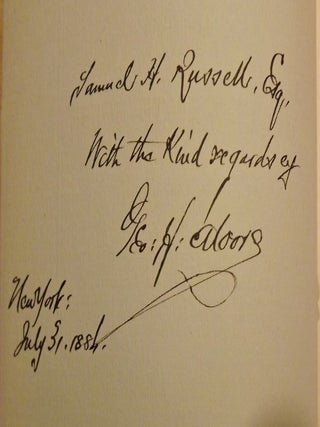 Samuel H. Russell, Esq.
With the Kind regards of
Geo: H: Moore
New York:
July 31. 1884.